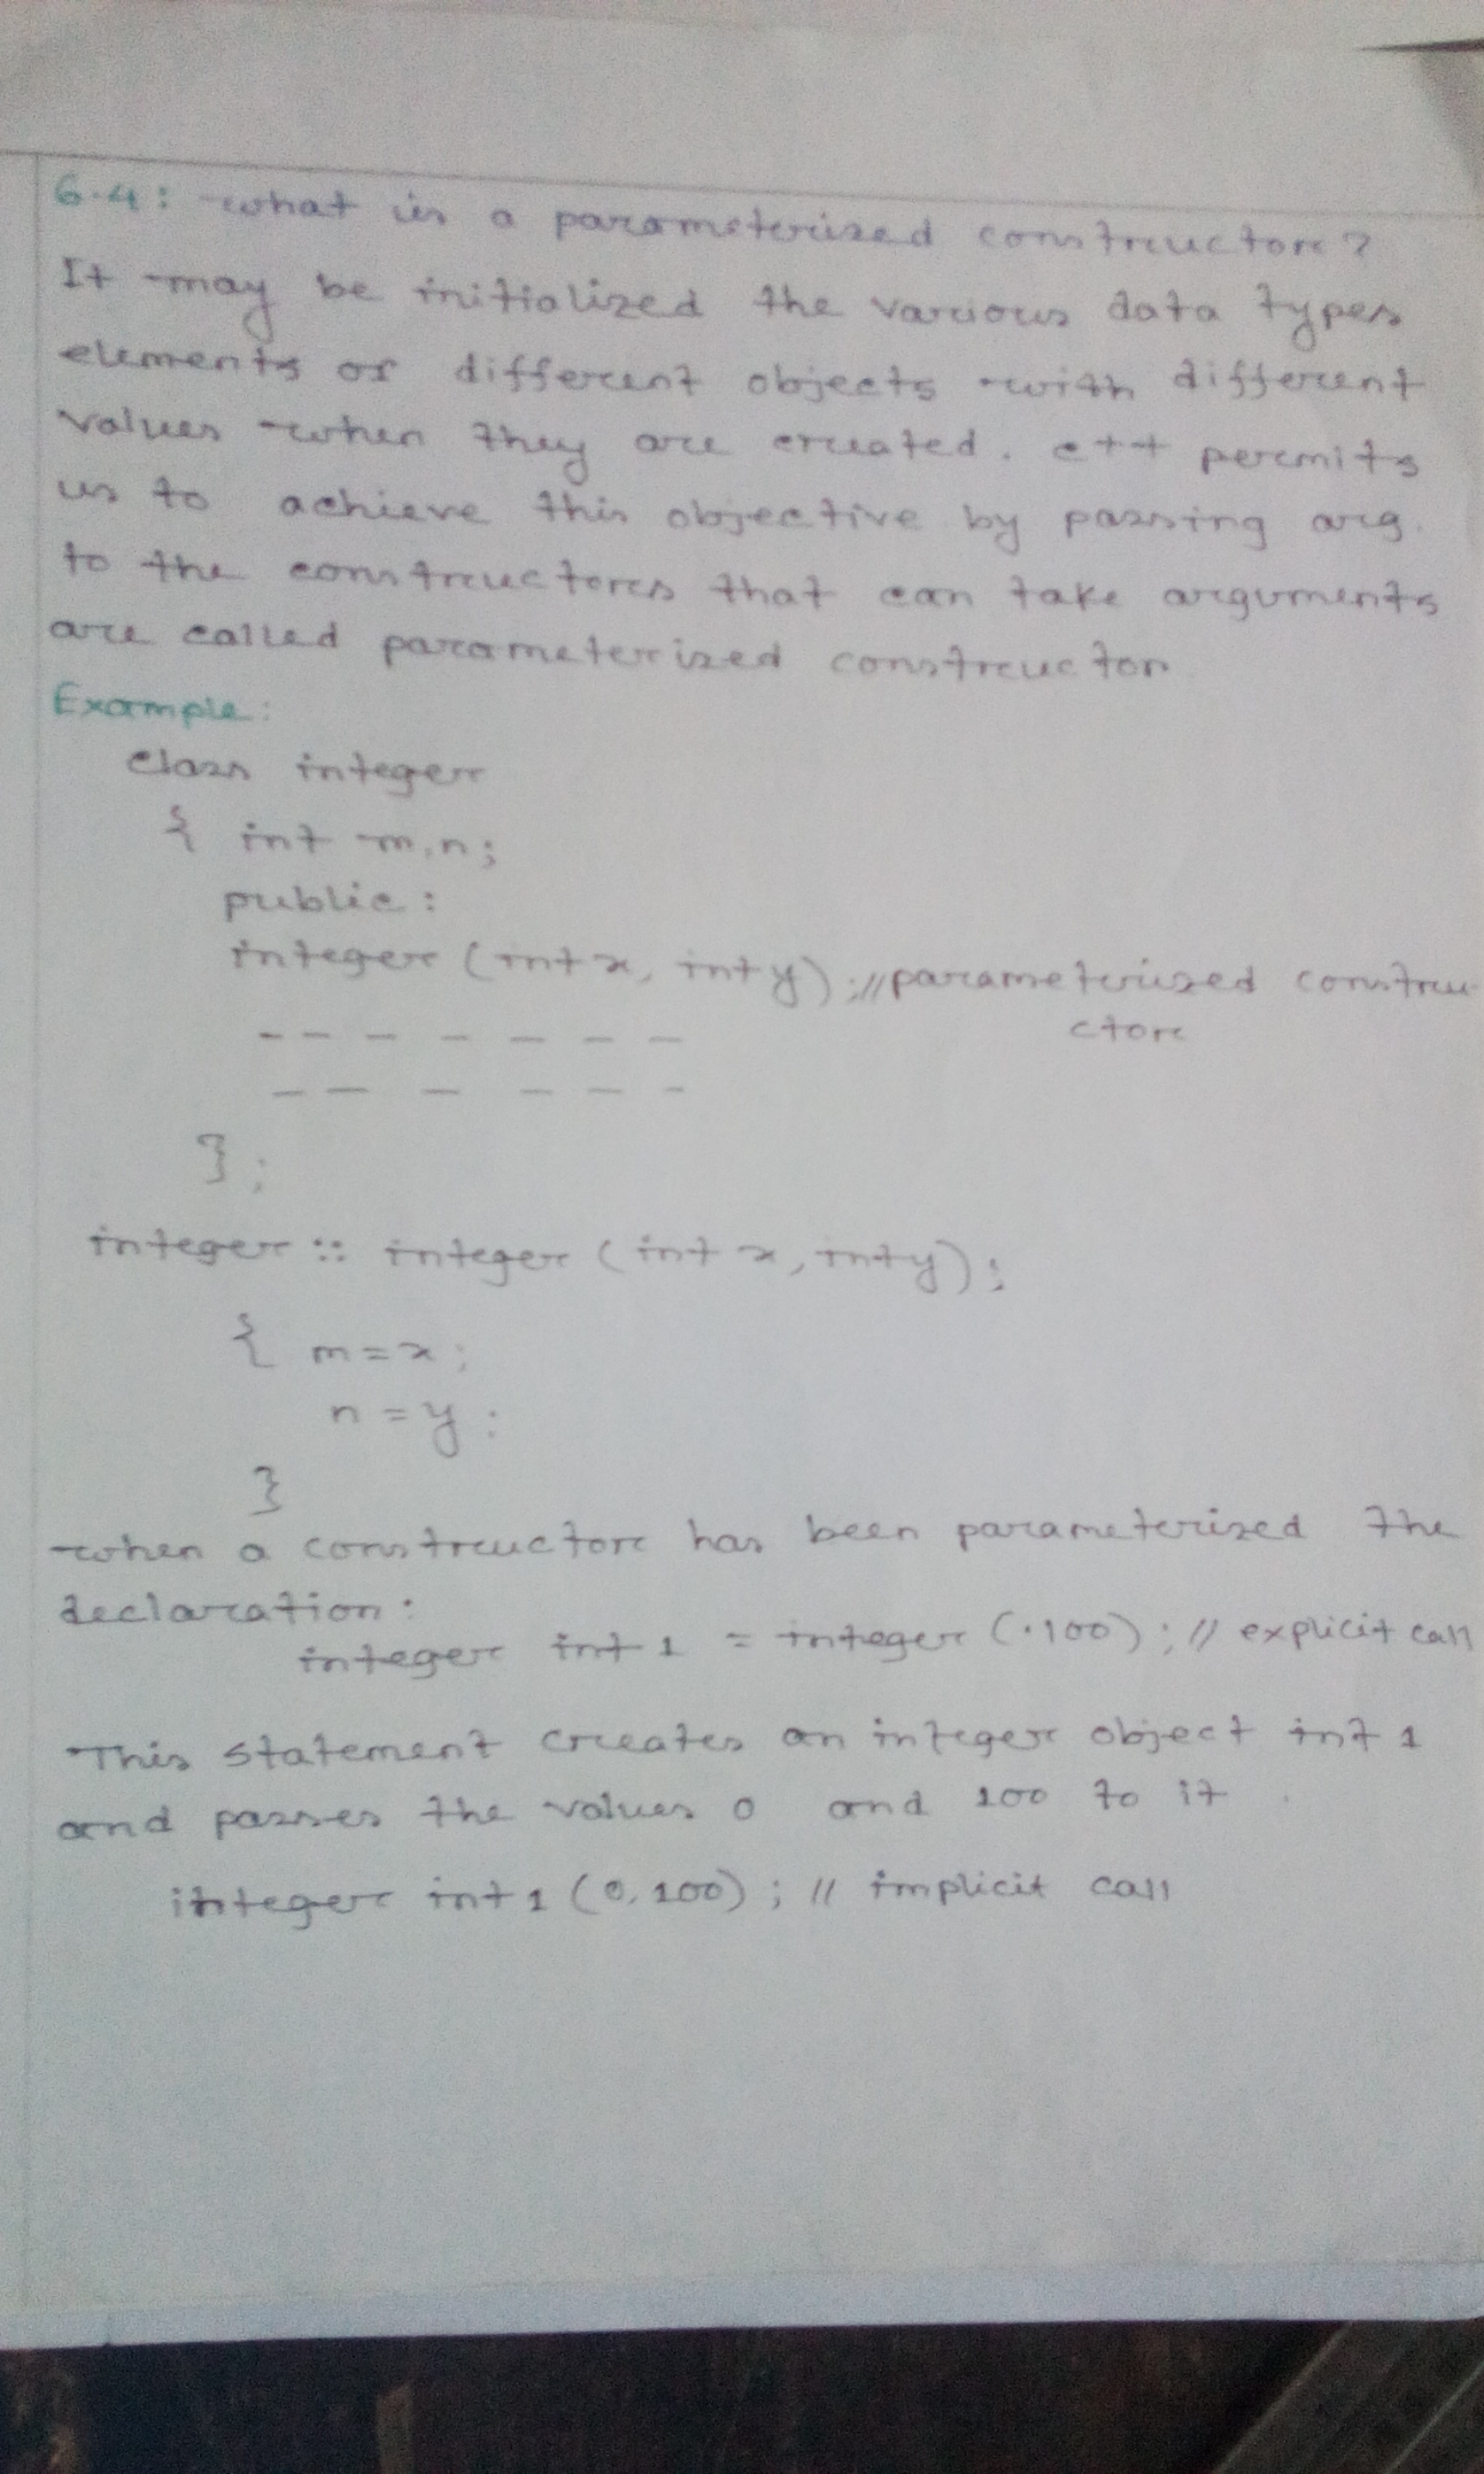 6.4: what is a parameterized constructor?
It may be initialized the various data types
elements of different objects with different
values when they are created. c++ permits
us to achieve this objective by passing arg.
to the constructors that can take arguments
are called parameterized constructor
Example:
class integer
{ int m,n;
public:
integer (int x, int y); // parameterized constru-
ctor
- - - - - - -
- - - - - -
};
integer :: integer (int x, int y);
{ m=x;
n=y;
}
when a constructor has been parameterized the
declaration:
integer int 1 = integer (.100); // explicit call
This statement creates an integer object int 1
and passes the values 0 and 100 to it.
integer int 1 (0,100); // implicit call